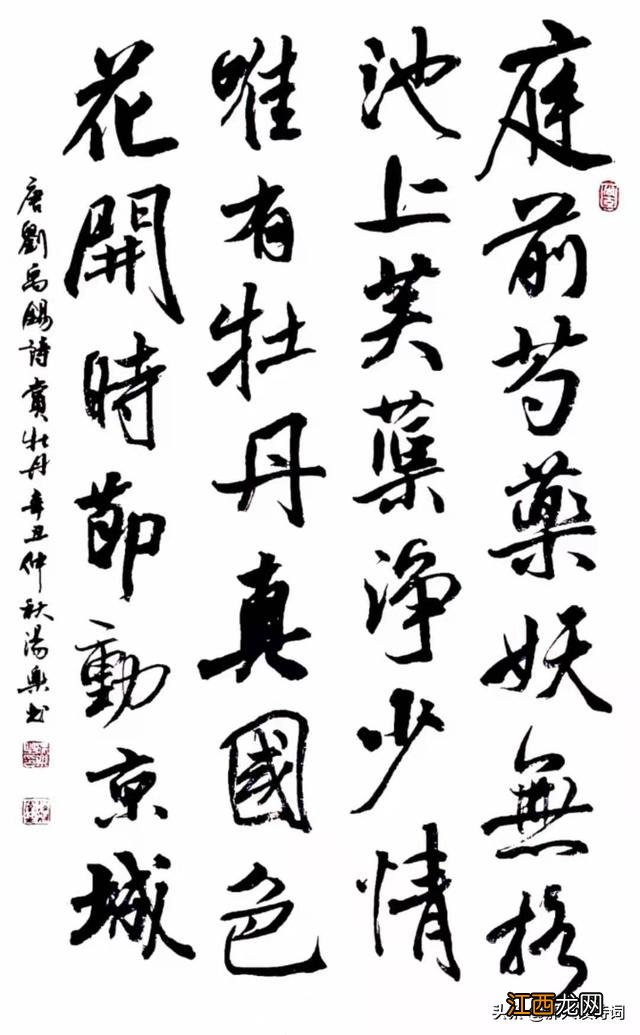 庭前芍藥妖無格
池上芙蕖淨少情
唯有牡丹真國色
花開時節動京城
唐劉禹錫詩賞牡丹辛丑仲秋湯樂书
江西龙网